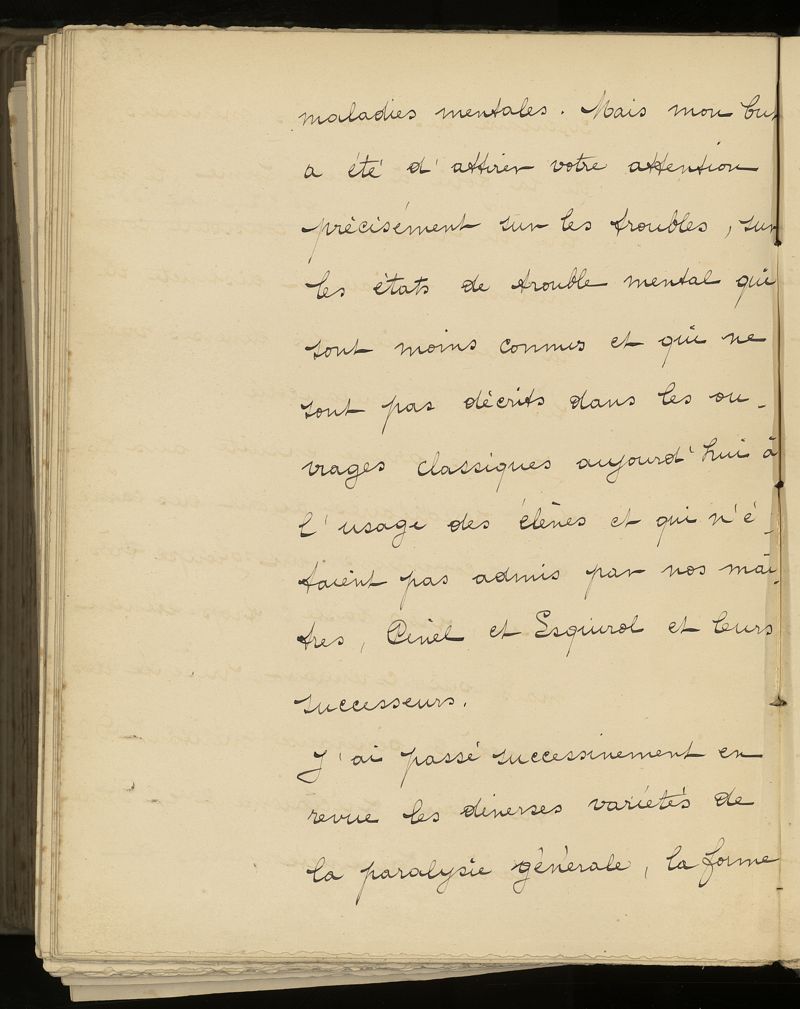 maladies mentales. Mais mon but
a été d'attirer votre attention
précisément sur les troubles, sur
les états de trouble mental qui
sont moins connus et qui ne
sont pas décrits dans les ou-
vrages classiques aujourd'hui à
l'usage des élèves et qui n'é-
taient pas admis par nos maî-
tres, Pinel et Esquirol et leurs
successeurs.
J'ai passé successivement en
revue les diverses variétés de
la paralysie générale, la forme